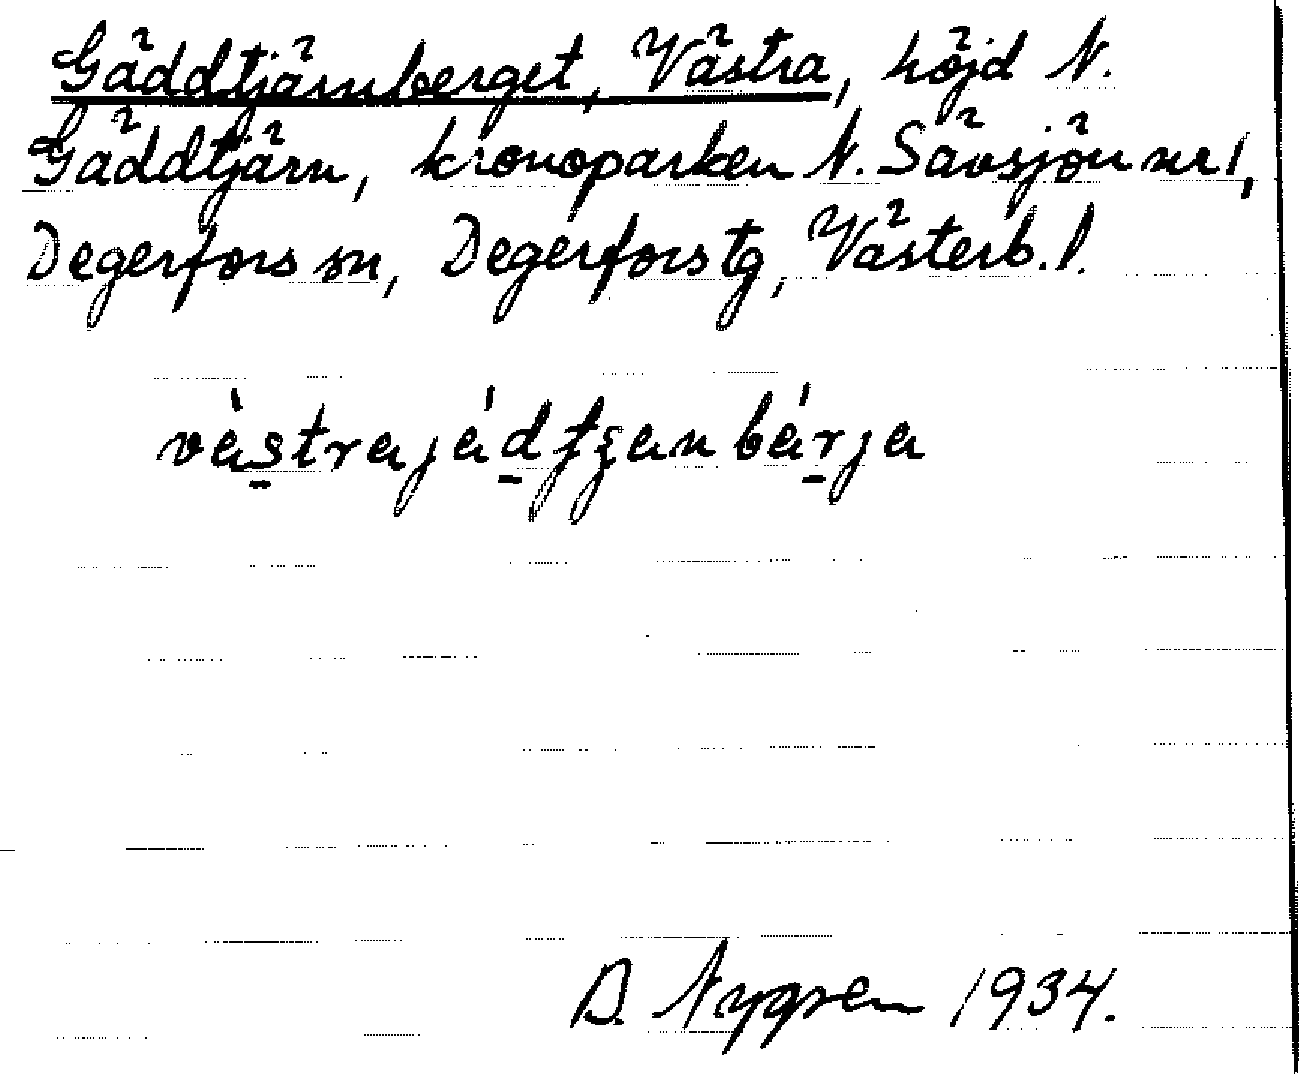 Gäddtjärnberget, Västra, höjd N.
Gäddtjärn, kronoparken N. Sävsjön nr 1,
Degerfors sn, Degerfors tg, Västerb. l.
B. Nygren 1934.